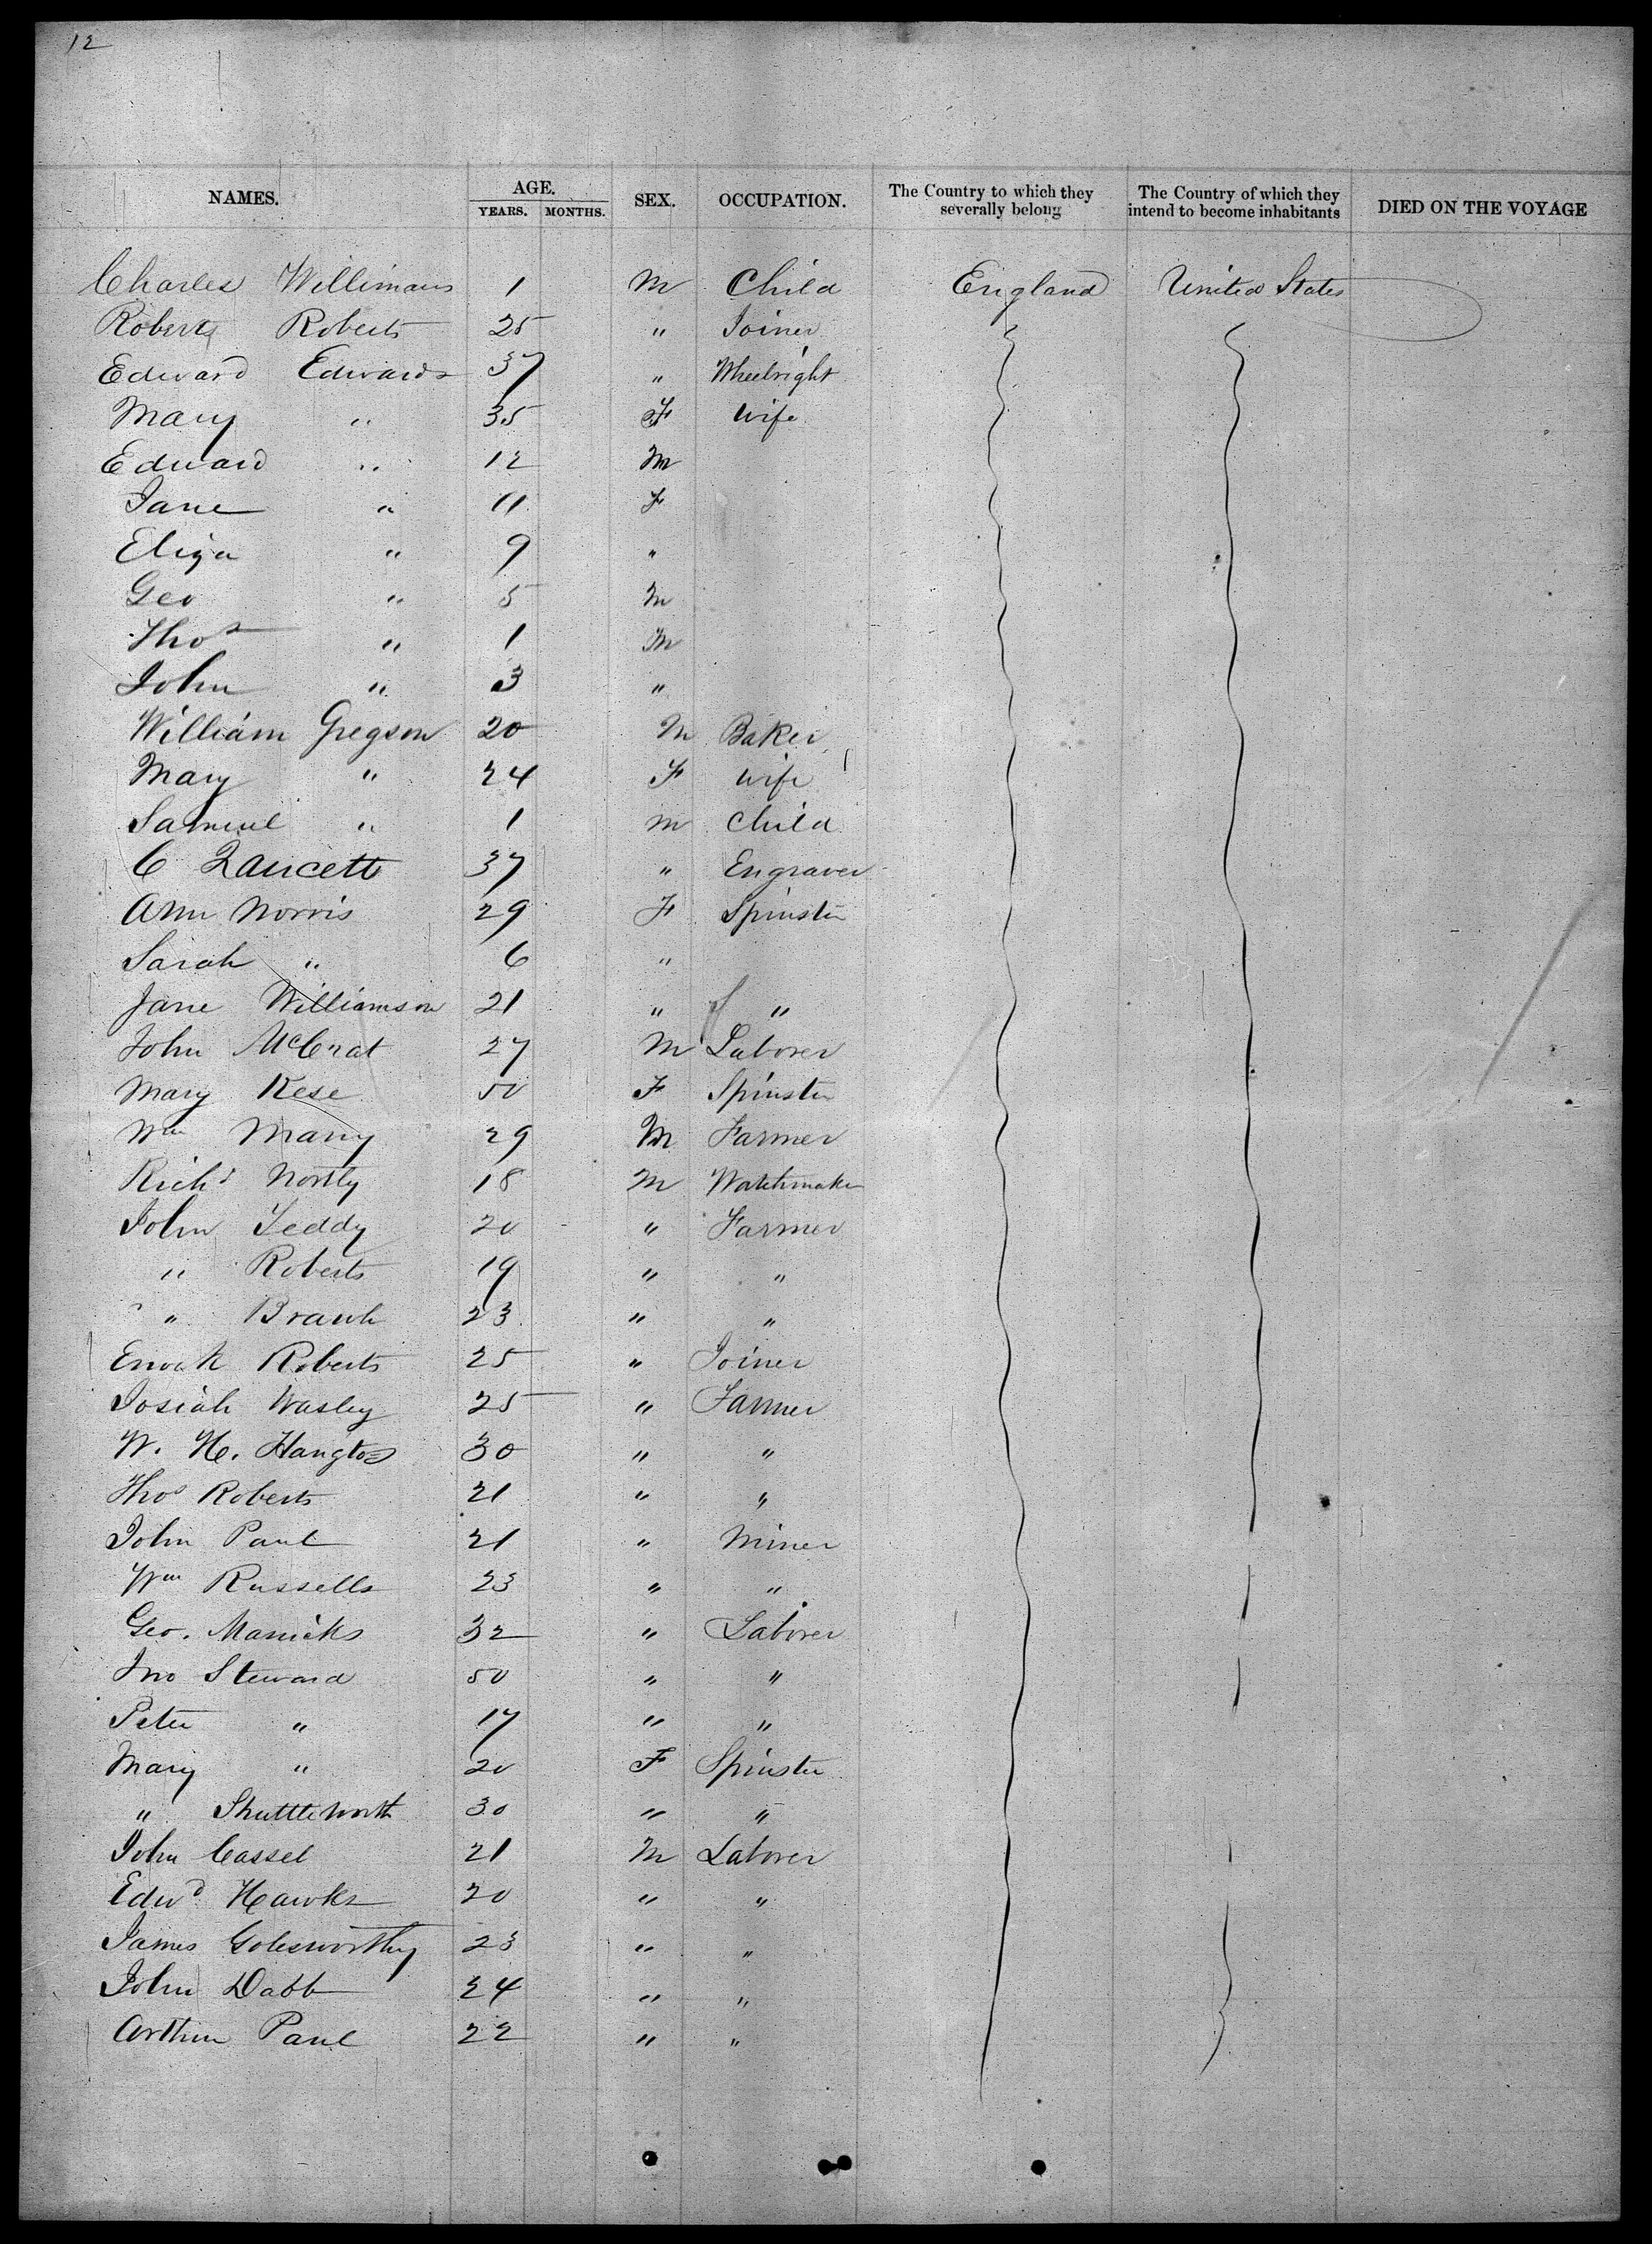 12
NAMES. AGE. SEX. OCCUPATION. The Country to which they severally belong The Country of which they intend to become inhabitants DIED ON THE VOYAGE
YEARS. MONTHS.
Charles Willimans 1 M Child England United States
Roberts Roberts 25 " Joiner
Edward Edwards 37 " Wheelright
Mary " 35 F Wife
Edward " 12 M
Jane " 11 F
Eliza " 9 "
Geo " 5 M
Thos " 1 M
John " 3 "
William Gregson 20 M Baker
Mary " 24 F Wife
Samuel " 1 M Child
C 37 " Engraver
Ann Norris 29 F Spinster
Sarah " 6 "
Jane Williamson 21 " "
John McCrat 27 M Laborer
Mary Kese 50 F Spinster
Wm Many 29 M Farmer
Richd Nortly 18 M Watchmaker
John Leddy 20 " Farmer
" Roberts 19 " "
" 23 " "
Enoch Roberts 25 " Joiner
Josiah Wasley 25 " Farmer
W. H. 30 " "
Thos Roberts 21 " "
John Paul 21 " Miner
Wm Russells 23 " "
Geo. 32 " Laborer
Jno Steward 50 " "
Peter " 17 " "
Mary " 20 F Spinster
" Shuttleworth 30 " "
John Cassel 21 M Laborer
Edwd Hawks 20 " "
James Golesworthy 23 " "
John Dabb 24 " "
Arthur Paul 22 " "